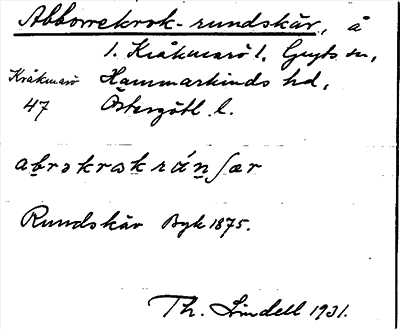 Abborrekrok-rundskär, å
1. Kråkmarö l. Gryts sn,
Kråkmarö Hammarkinds hd,
47 Östergötl. l.
abrəkrəkránʃær
Rundskär Byk 1875.
Th. Lindell 1931.